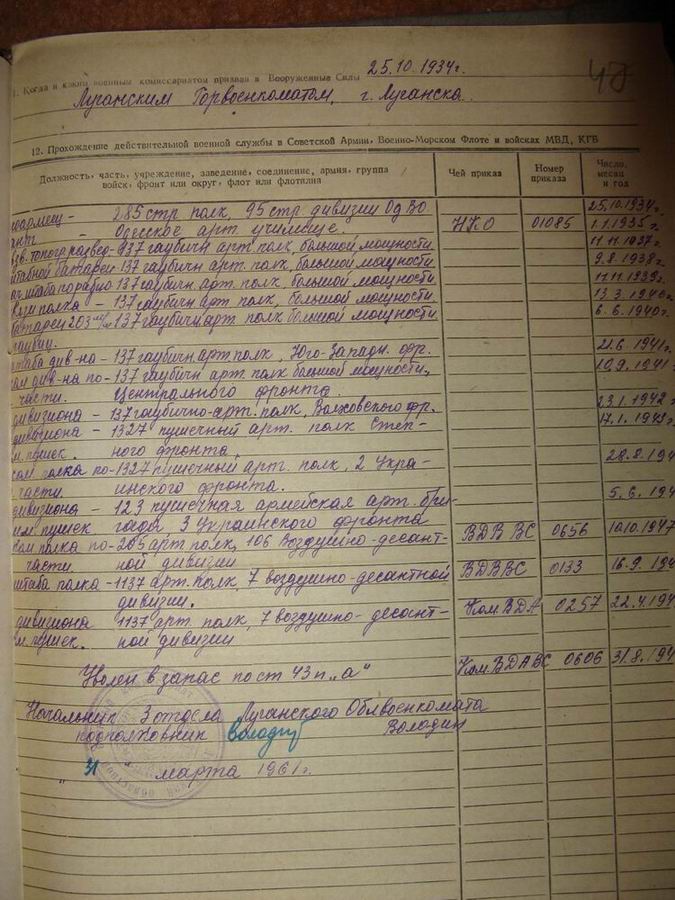 25.10.1934г.
47
1. Когда и каким военным комиссариатом призван в Вооруженные Силы
Луганским Горвоенкоматом, г. Луганска.
12. Прохождение действительной военной службы в Советской Армии, Военно-Морском Флоте и войсках МВД, КГБ
Должность, часть, учреждение, заведение, соединение, армия, группа войск, фронт или округ, флот или флотилия
Чей приказ
Номер приказа
Число, месяц и год
285 стр. полк, 95 стр. дивизии ОдВО 25.10.1934г.
Одесское арт. училище. НКО 01085 1.1.1935г.
137 гаубичн. арт. полк, большой мощности 11.11.1937г.
137 гаубичн. арт. полк, большой мощности 9.8.1938г.
137 гаубичн. арт. полк, большой мощности 11.11.1939г.
полка - 137 гаубичн. арт. полк, большой мощности 13.3.1940г.
батареи 203 м/м 137 гаубичн. арт. полк большой мощности 6.6.1940г.
гаубиц.
штаба див-на - 137 гаубичн. арт. полк, Юго-Западн. фр. 21.6.1941г.
ком див-на по - 137 гаубичн арт. полк большой мощности, 10.9.1941
части. Центрального фронта.
дивизиона - 137 гаубично-арт. полк, Волховского фр. 23.1.1942
дивизиона - 1327 пушечный арт. полк Степ- 17.1.1943г.
м. пушек. ного фронта,
ком полка по - 1327 пушечный арт. полк, 2 Укра- 28.8.194
части инского фронта.
дивизиона - 123 пушечная армейская арт. бри- 5.6.194
м. пушек гада 3 Украинского фронта
ком полка по - 205 арт полк, 106 воздушно-десант- ВДВ ВС 0656 10.10.1947
части ной дивизии
штаба полка - 1137 арт. полк, 7 воздушно-десантной ВДВ ВС 0133 16.9.194
дивизии.
дивизиона 1137 арт. полк, 7 воздушно-десант- Ком ВДА 0257 22.4.194
м. пушек. ной дивизии
Уволен в запас по ст 43 п „а" Ком. ВДА ВС 0606 31.8.194
Начальник 3 отдела Луганского Облвоенкомата
подполковник Володин
„31 марта 1961г.